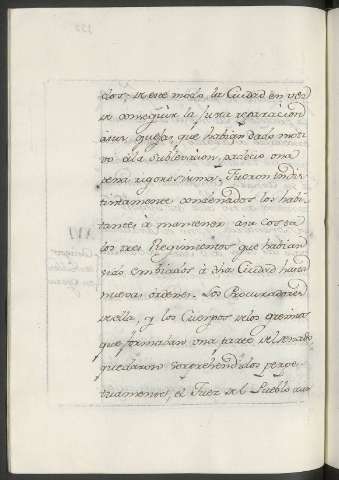 dos; de este modo la Ciudad en vez
de conseguir la justa reparacion
à sus quejas, que habian dado moti
vo à la sublevacion, padecio una
pena rigorosisima. Fueron indis-
tintamente condenados los habi-
tantes à mantener à su costa
los tres Regimientos que habian
sido embiados à dha Ciudad hasta
nueva orden. Los Procuradores
de ella, y los Cuerpos de los gremios
que formaban una parte del senado
quedaron reprehendidos perpe-
tuamente, el Juez del Pueblo